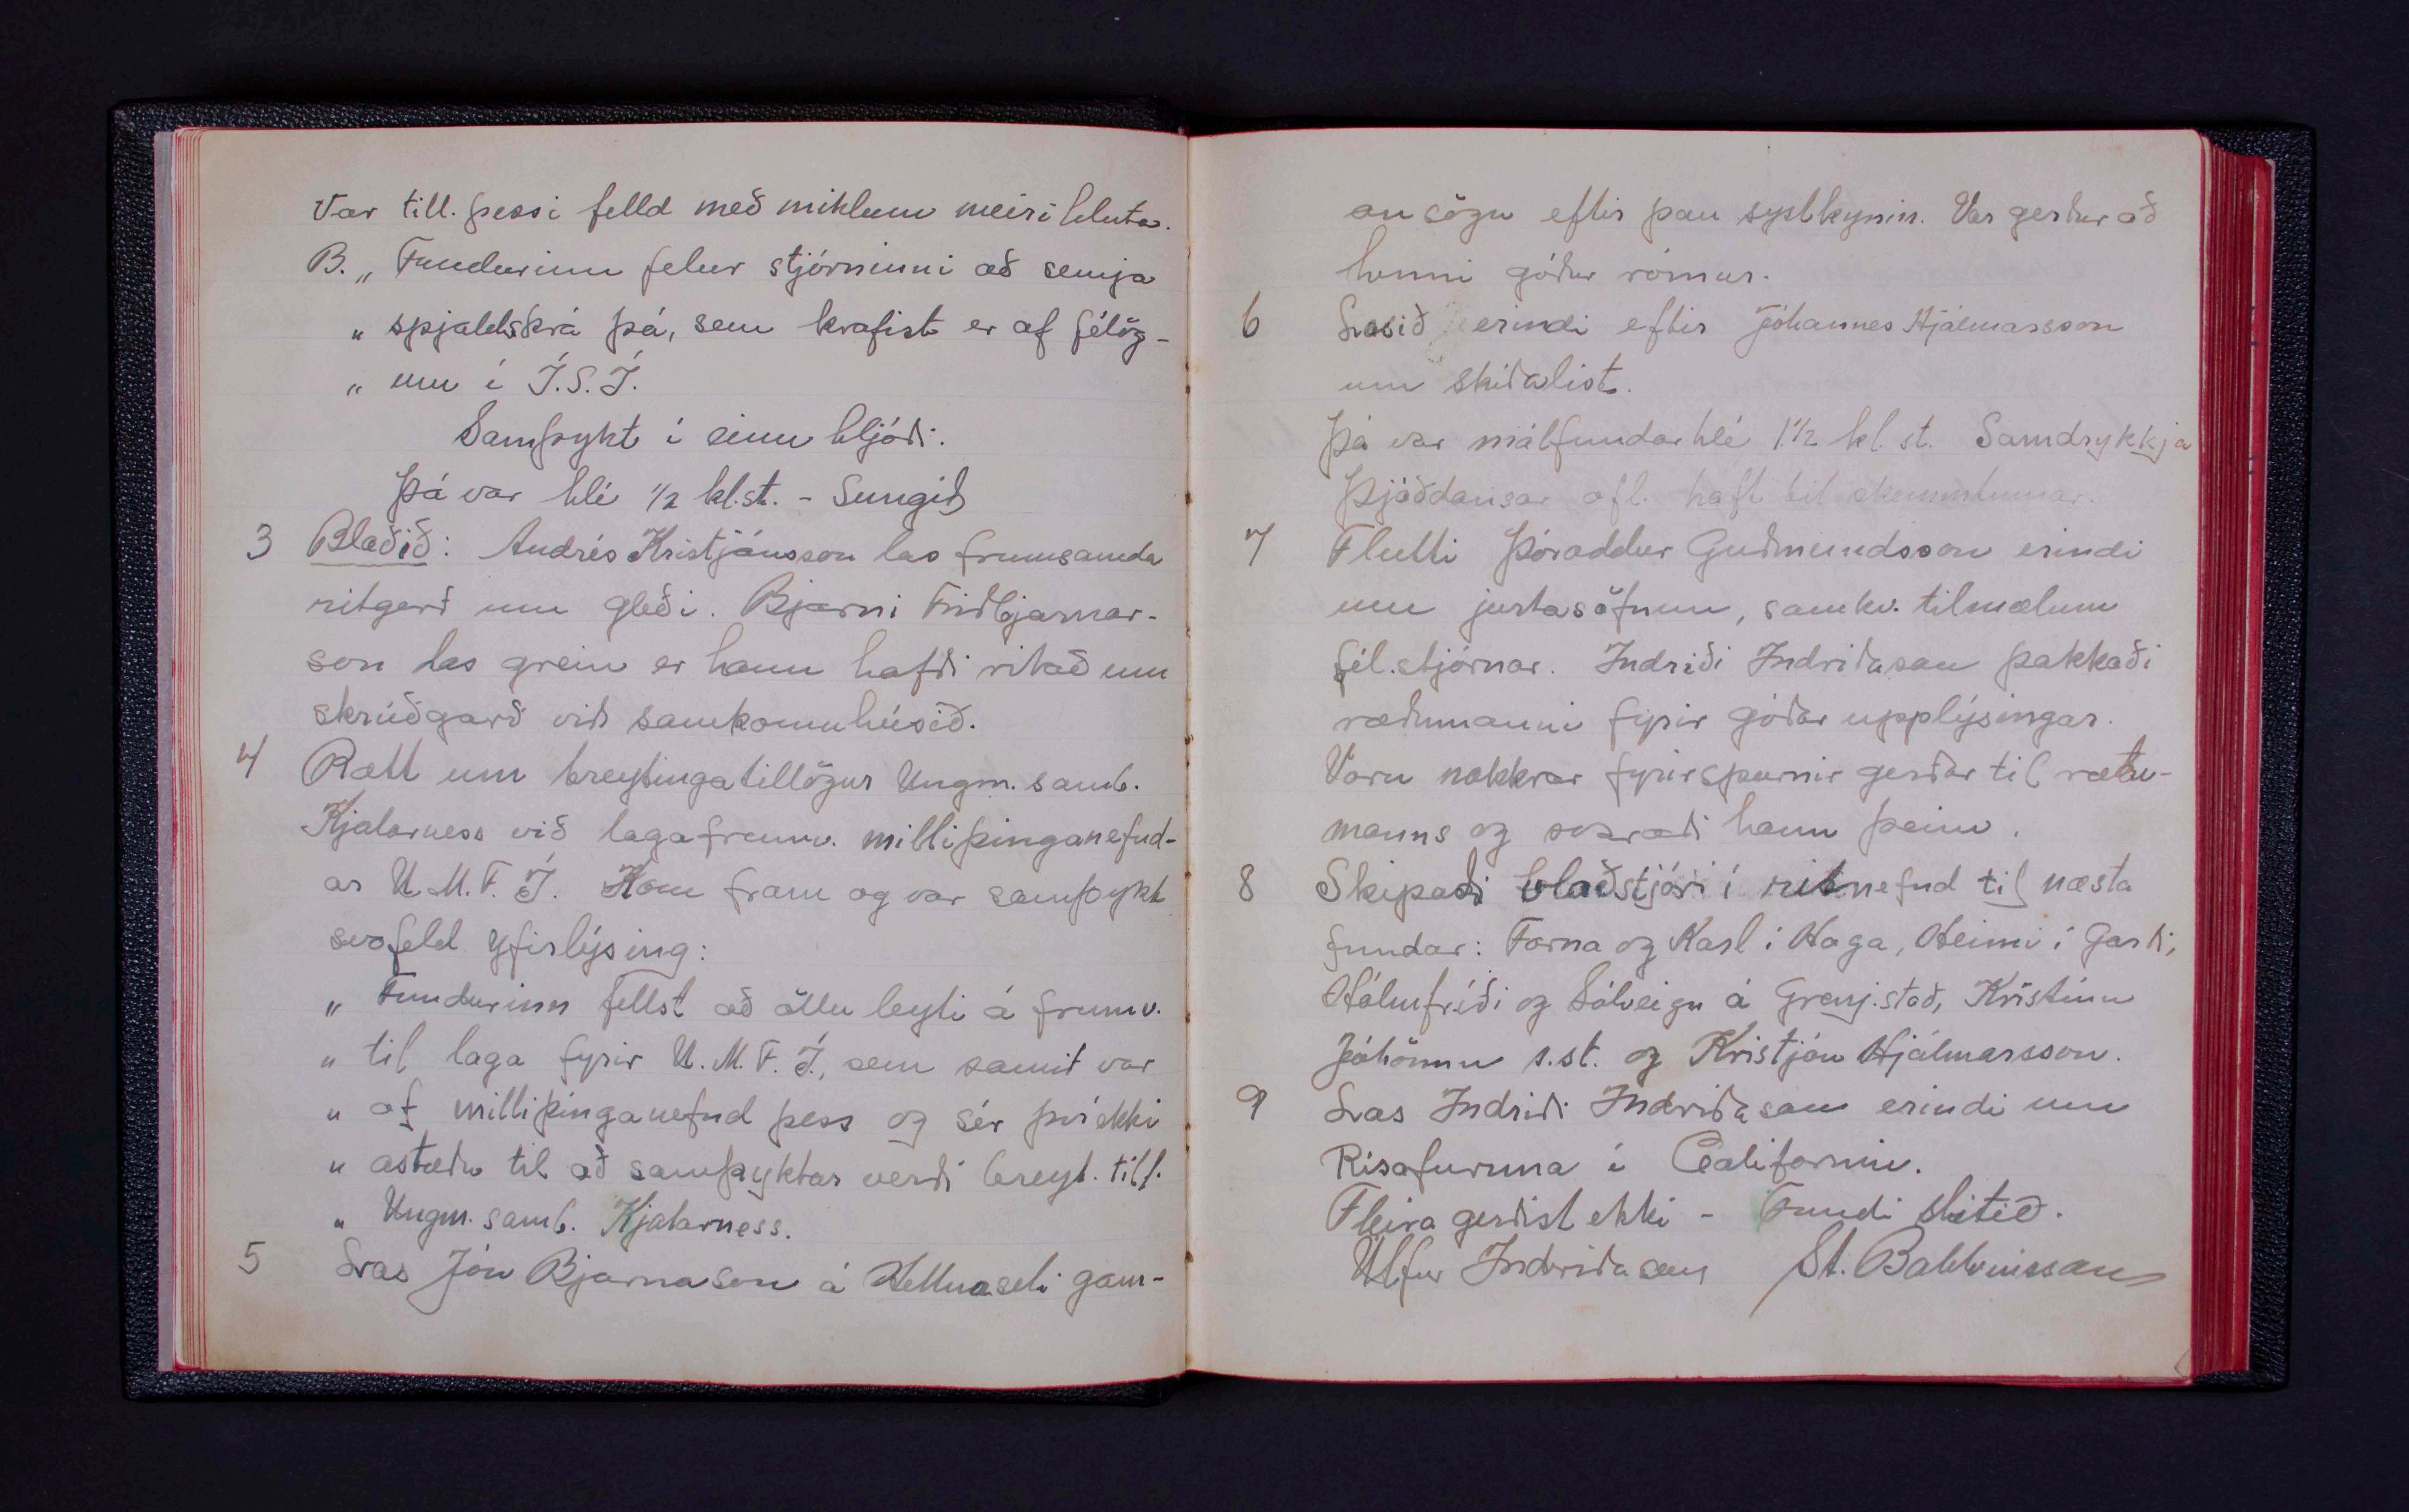 Var till. þessi felld með miklum meiri hluta.
B. „ Fundurinn felur stjórninni að semja
„ spjaldskrá þá, sem krafist er af félög-
„ um í Í.S.Í.
Samþykt í einu hljóði.
Þá var hlé 1/2 kl.st. - Sungið
3 Blaðið: Andrés Kristjánsson las frumsamda
ritgerð um gleði. Bjarni Friðbjarnar-
son las grein er hann hafði ritað um
skrúðgarð við samkomuhúsið.
4 Rætt um breytingatillögur Ungm. samb.
Kjalarness við lagafrumv. milliþinganefnd-
ar U.M.F.Í. Kom fram og var samþykt
svofeld yfirlýsing:
„ Fundurinn fellst að öllu leyti á frumv.
„ til laga fyrir U.M.F.Í., sem samið var
„ af milliþinganefnd þess og sér því ekki
„ ástæðu til að samþyktar verði breyt. till.
„ Ungm. samb. Kjalarness.
5 Las Jón Bjarnason á Hellnaseli gam-
an sögu eftir þau systkynin. Var gerður að
henni góður rómur.
6 Lesið erindi eftir Jóhannes Hjálmarsson
um skíðalist.
Þá var málfundarhlé 1 1/2 kl. st. Samdrykkja
Þjóðdansar ofl. haft til skemmtunar.
7 Flutti Þóroddur Guðmundsson erindi
um jurtasöfnun, samkv. tilmælum
fél.stjórnar. Indriði Indriðason þakkaði
ræðumanni fyrir góðar upplýsingar.
Voru nokkrar fyrirspurnir gerðar til ræðu-
manns og svaraði hann þeim.
8 Skipaði blaðstjóri í ritnefnd til næsta
fundar: Forna og Karl í Haga, Heimi í Garði,
Hólmfríði og Sólveigu á Grenj.stað, Kristínu
Jóhönnu s.st. og Kristján Hjálmarsson.
9 Las Indriði Indriðason erindi um
Risafuruna í Californiu.
Fleira gerðist ekki - Fundi slitið.
Úlfur Indriðason St. Baldvinsson